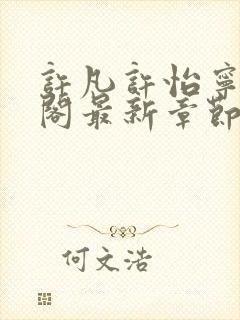 許凡許怡寧
閣最新章節
何文浩